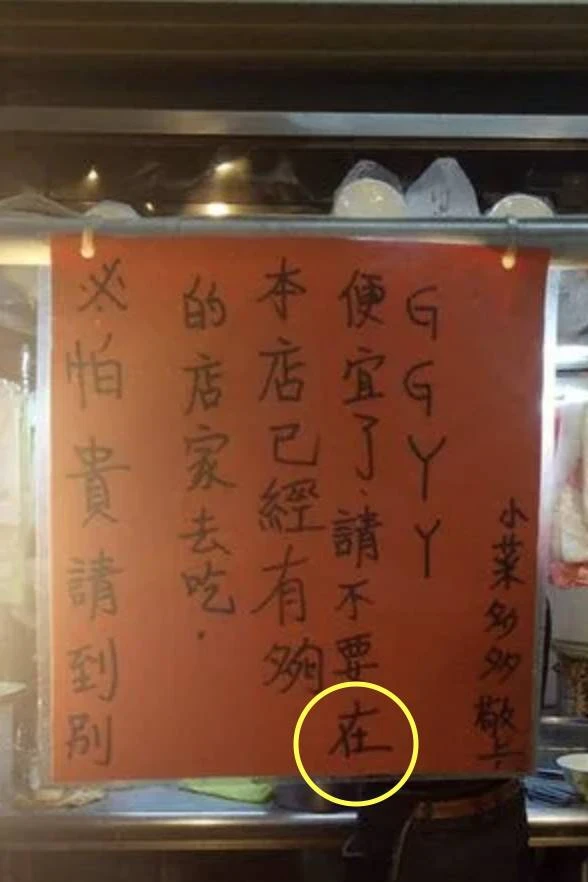 ※怕貴請到別
的店家去吃.
本店已經有夠
便宜了.請不要在
GGYY
小菜多多敬上